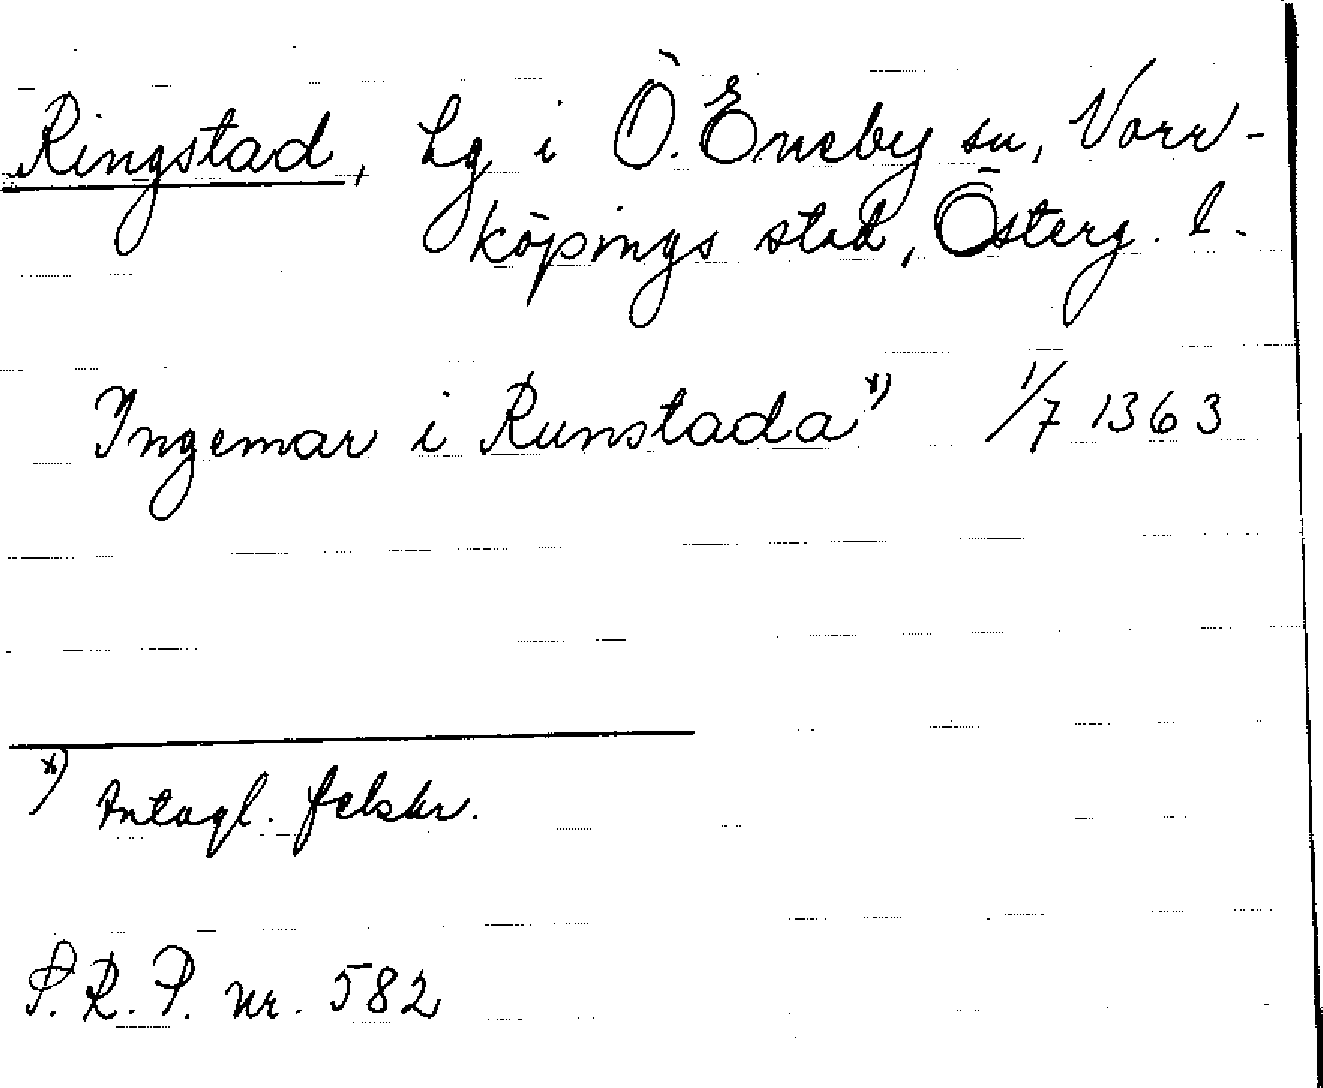 Ringstad, Lg. i Ö. Eneby sn, Norr-
köpings stad, Österg. l.
Ingemar i Runstada x) 1/7 1363
x) Antagl. felskr.
S.R.P. nr. 582